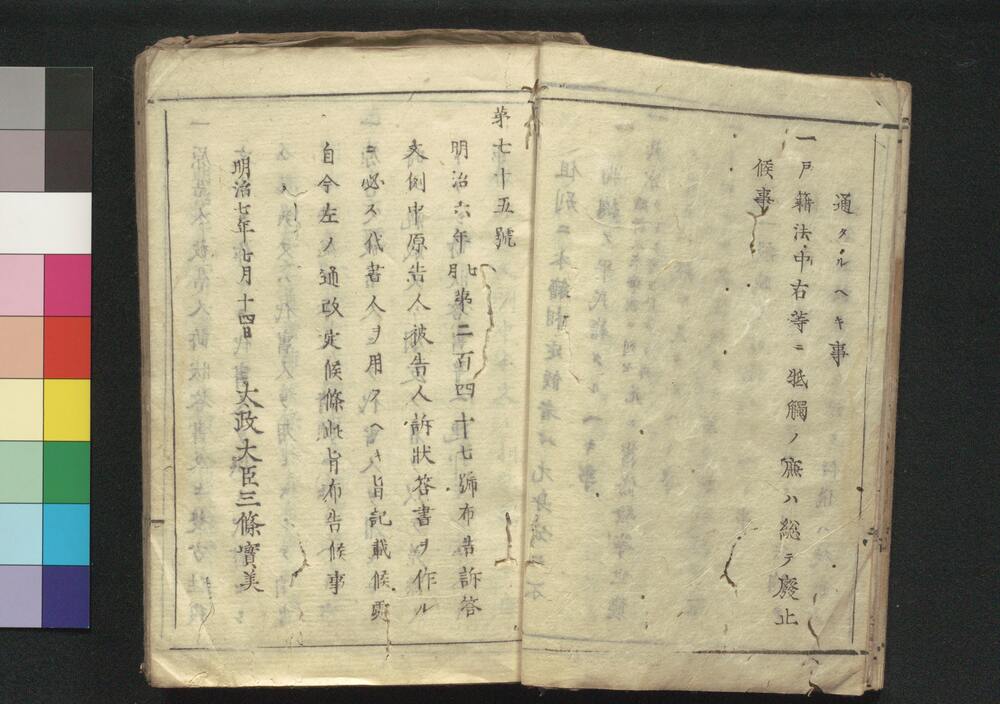 通タルヘキ事
一戸籍法中右等ニ牴觸ノ廉ハ総テ廢止
候事
第七十五號
明治六年七月第二百四十七號布告訴答
文例中原告人被告人訴狀答書ヲ作ル
ニ必ス代書人ヲ用フヘキ旨記載候處
自今左ノ通改定候條此旨布告候事
明治七年七月十四日 太政大臣三條實美